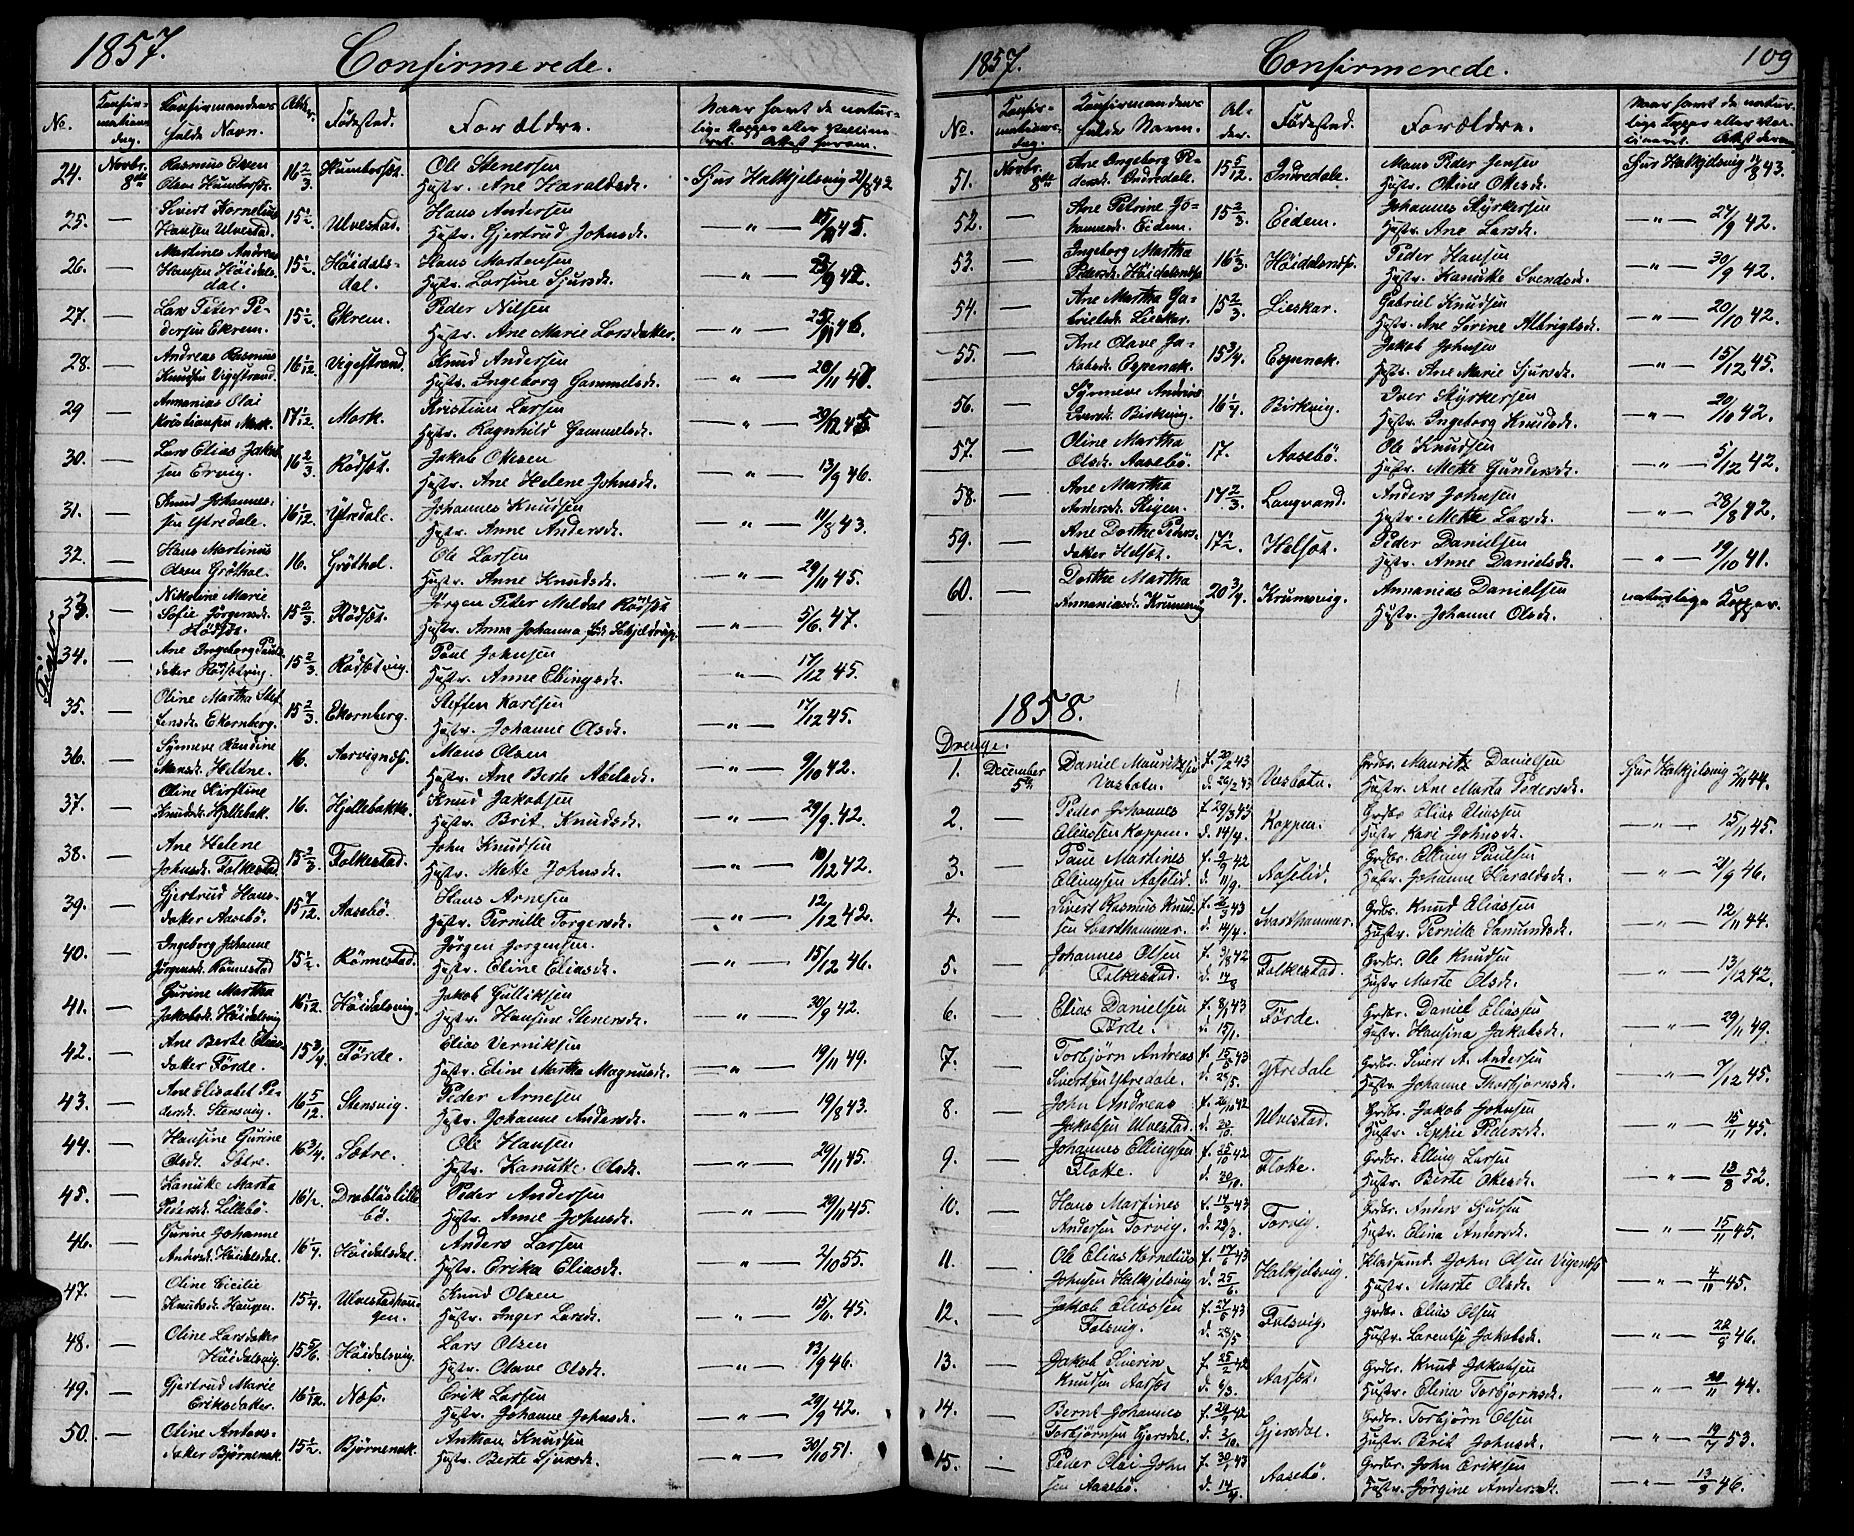 1857.
Confirmerede.
No.
Confir-
mations
dag.
Confirmandens
fulde Navn.
Alder.
Födested.
Forældre.
24. Novbr. 8de Rasmus Eksen
Olsen Humborset. 16 2/3 Humborset. Ole Stenersen
Hustr. Ane Haraldsdr. Sjur Halkjelsvig 21/8 42
25. — Sivert Kornelius
Hansen Ulvestad. 15 1/2 Ulvestad. Hans Andersen
Hustr. Gjertrud Johnsdr. — " — 45.
26. — Martines Andreas
Hansen Höidals-
dal. 15 1/2 Höidals-
dal. Hans Martensen
Hustr. Larsine Sjursdr. — " — 23/9 42.
27. — Lars Peter Pe-
dersen Ekrem. 15 1/2 Ekrem. Peder Nilsen
Hustr. Ane Marie Larsdatter. — " — 46.
28. — Andreas Rasmus
Knudsen Vigestrand. 16 1/12 Vigestrand. Knud Andersen
Hustr. Ingeborg Gammelsdr. — " — 20/11
29 — Annanias Olai
Kristiansen Mork. 17 1/12 Mork. Kristian Larsen
Hustr. Ragnhild Gammelsdr. — " — 29/12
30. — Lars Elias Jakob-
sen Ervig. 16 2/3 Rödset. Jakob Olsen
Hustr. Ane Helene Johnsdr. — " — 13/9 46.
31. — Knud Johannes-
sen Ytredale. 16 1/12 Ytredale. Johannes Knudsen
Hustr. Anne Andersdr. — " — 11/8 43.
32. — Hans Martinus
Olsen Gröthol. 16. Gröthol. Ole Larsen
Hustr. Anne Knudsdr. — " — 29/11 45.
Piger
33. — Nikoline Marie
Sofie Jörgensdr.
Rödset. 15 2/3 Rödset. Jörgen Peter Meldal Rödset
Hustr. Anna Johanna — " — 5/6 47.
34. — Ane Ingeborg Pauls-
datter Rödsetvig. 15 2/3 Rödsetvig. Paul Johnsen
Hustr. Anne Ellingsdr. — " — 17/12 45.
35. — Oline Martha Stef-
fensdr. Ekornberg. 15 2/3 Ekornberg. Steffen Karlsen
Hustr. Johanne Olsdr. — " — 17/12 45.
36. — Synneve Randine
Monsdr. Heltne. 16. Aarvignds. Mons Olsen
Hustr. Ane Berte Abelsdr. — " — 9/10 42.
37. — Oline Kirstine
Knudsdr. Hjellebak. 16. Hjellebakke. Knud Jakobsen
Hustr. Brit Knudsdr. — " — 29/9. 42.
38. — Ane Helene
Johnsdr. Folkestad. 15 2/3 Folkestad. John Knudsen
Hustr. Mette Johnsdr. — " — 10/12 42.
39. — Gjertrud Hans-
datter Aasebö. 15 7/12 Aasebö. Hans Arnesen
Hustr. Pernille Torgersdr. — " — 12/12 42.
40. — Ingeborg Johanne
Jörgensdr. Rönnestad 15 1/2. Rönnestad. Jörgen Jorgensen.
Hustr. Eline Eliasdr. — " — 15/12 46.
41. — Gurine Martha
Jakobsdr. Höidalsvig 16 1/12. Höidalsvig. Jakob Gulliksen
Hustr. Hansine Stenersdr. — " — 30/9 42.
42. — Ane Berte Elias-
datter Förde. 15 3/4 Förde. Elias Verniksen
Hustr. Eline Martha Magnusdr. — " — 19/11 49.
43. — Ane Elisabet Pe-
dersdr. Stensvig. 16 5/12 Stensvig. Peder Arnesen
Hustr. Johanne Andersdr. — " — 19/8 43.
44. — Hansine Gurine
Olsdr. Sætre. 16 3/4. Sætre. Ole Hansen
Hustr. Kanutte Olsdr. — " — 29/11 45.
45. — Kanutte Marta
Pedersdr. Lillebö. 16 1/2 Drabløs lille
bö. Peder Andersen
Hustr. Anne Johnsdr. — " — 29/11 45.
46. — Gurine Johanne
Andersdr. Höidalsdal. 16 1/4 Höidalsdal. Anders Larsen
Hustr. Erika Eliasdr. — " — 2/10 55.
47. — Oline Cicilie
Knutsdr. Haugen. 15 1/4. Ulvestadhau-
gen. Knud Olsen
Hustr. Inger Larsdr. — " — 15/11. 45.
48. — Oline Larsdatter
Höidalsvig. 15 5/6. Höidalsvig. Lars Olsen
Hustr. Olave Olsdr. — " — 13/9 46.
49. — Gjertrud Marie
Eriksdatter. 16 1/12. Næss. Erik Larsen
Hustr. Johanne Johnsdr. — " — 29/9 42.
50. — Oline Antons-
datter Björnenak. 15 1/2. Björnenak. Anthon Knudsen
Hustr. Berte Sjursdr. — " — 30/10 51.
1857.
Confirmerede.
109
No.
Confir-
mations-
dag.
Confirmandens
fulde Navn.
Al-
der.
Födested.
Forældre.
51. Novbr. 8de Ane Ingeborg Pe-
dersdr. Indredale. 15 5/12 Indredale. Mons Peder Jensen
Hustr. Oline Olsdr. Sjur Halkjelsvig 11/8 43.
52. — Ane Petrine Jo-
hannsdr. Eidem. 15 2/3. Eidem. Johannes Styrkersen
Hustr. Ane Larsdr. — " — 24/9 42.
53. — Ingeborg Martha
Pedersdr. Höidalsnds. 16 1/3. Höidalsnds. Peder Hansen
Hustr. Kanutte Svendsdr. — " — 30/9 42.
54. — Ane Martha Ga-
brielsdr. Lieskar. 15 2/3. Lieskar. Gabriel Knudsen
Hustr. Ane Serine Albrigtsdr. — " — 20/10 42.
55. — Ane Olave Ja-
kobsdr. Espenak. 15 3/4. Espenak. Jakob Johnsen
Hustr. Ane Marie Sjursdr. — " — 15/12 45.
56. — Synneve Andrine
Iversdr. Birkvig. 16 1/4 Birkvig. Iver Styrkersen
Hustr. Ingeborg Knudsdr. — " — 20/10 42.
57. — Oline Martha
Olsdr. Aasebö. 17. Aasebö. Ole Knudsen
Hustr. Mette Gundersdr. — " — 5/12 42.
58. — Ane Martha
Andersdr. Stigen. 17 2/3. Langvand. Anders Johnsen
Hustr. Mette Larsdr. — " — 23/8 42.
59. — Ane Dorthe Peders-
datter Helset. 17 1/2. Helset. Peder Danielsen
Hustr. Anne Danielsdr. — " — 19/10 41.
60. — Dorthe Martha
Annaniasdr. Krumsvig 20 3/4. Krumsvig. Annanias Danielsen
Hustr. Johanne Olsdr. naturlige Kopper.
1858.
Drenge.
1. December 5te Daniel Mauritzsen
Vasbotn. f. 20/2 43
d. 26/2 43 Vasbotn. Grdbr. Mauritz Danielsen
Hustr. Ane Marta Pedersdr. Sjur Halkjelsvig 2/11 44.
2. — Peder Johannes
Eliassen Koppen. f. 29/3 43
d. 14/4. Koppen. Grdbr. Elias Eliassen
Hustr. Kari Johnsdr. — " — 15/11 45.
3. — Paul Martines
Ellingsen Aaselid. f. 2/9 42
d. 11/9. Aaselid. Grdbr. Elling Paulsen
Hustr. Johanne Haraldsdr. — " — 21/9 46.
4. — Sivert Rasmus Knud-
sen Svarthammer. f. 26/3 43
d. 14/4 Svarthammer. Grdbr. Knud Eliassen
Hustr. Pernille Samundsdr. — " — 12/11 44.
5. — Johannes Olsen
Folkestad. f. 9/8 42
d. 14/8 Folkestad. Grdbr. Ole Knudsen
Hustr. Marte Olsdr. — " — 13/12 42.
6. — Elias Danielsen
Förde. f. 8/1 43
d. 15/1. Förde. Grdbr. Daniel Eliassen
Hustr. Hansina Jakobsdr. — " — 29/11 49.
7. — Torbjörn Andreas
Sivertsen Ytredale. f. 15/5 43
d. 25/5. Ytredale Grdbr. Sivert A. Andersen
Hustr. Johanne Thorbjörnsdr. — " — 7/12 45.
8. — John Andreas
Jakobsen Ulvestad. f. 20/10 42
d. 20/10 Ulvestad. Grdbr. Jakob Johnsen
Hustr. Sophie Pedersdr. — " — 15/11 45.
9. — Johannes Ellingsen
Flotte. f. 25/10 42
d. 30/10. Flotte. Grdbr. Elling Larsen
Hustr. Berte Olsdr. — " — 13/8 52.
10. — Hans Martines
Andersen Torvig. f. 14/3 43
d. 29/3. Torvig. Grdbr. Anders Sjursen
Hustr. Elina Andersdr. — " — 15/11 45.
11. — Ole Elias Kornelius
Johnsen Halkjelsvig f. 17/6 43
d. 25/6. Halkjelsvig. Pladsmd. John Olsen Vigends
Hustr. Marte Olsdr. — " — 4/11 45.
12. — Jakob Eliassen
Folsvig. f. 21/5 43
d. 28/5 Folsvig. Grdbr. Elias Olsen
Hustr. Larentse Jakobsdr. — " — 22/9 46.
13. — Jakob Siverin
Knudsen Aarset f. 25/2 42
d. 6/3. Aarset. Grdbr. Knud Jakobsen
Hustr. Elina Torbjornsdr. — " — 20/11 44.
14. — Bernt Johannes
Torbjörnsen Gjersdal. f. 29/9 42
d. 2/10. Gjersdal. Grdbr. Torbjörn Olsen
Hustr. Brit Johnsdr. — " — 19/7 53.
15. — Peder Olai John-
sen Aasebö. f. 30/1 43
d. Aasebö. Grdbr. John Eriksen
Hustr. Jörgine Andersdr. — " — 13/9 46.